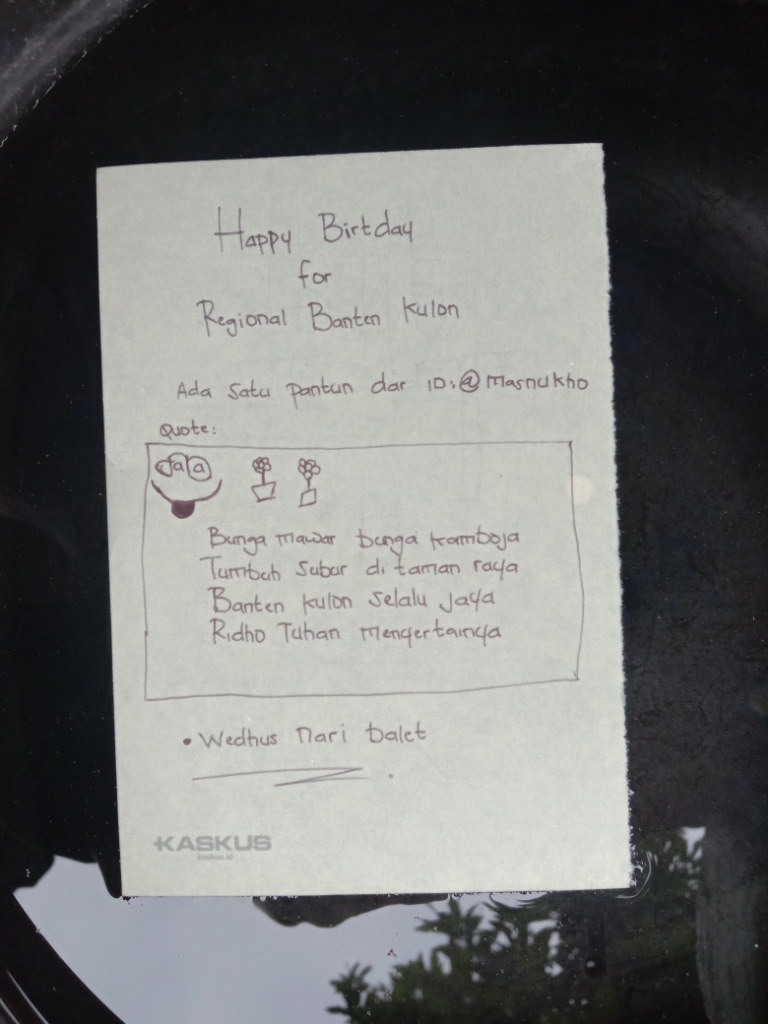 Happy Birtday
for
Regional Banten Kulon
Ada satu pantun dar ID:@masnukho
Quote:
Bunga mawar bunga kamboja
Tumbuh subur di taman raya
Banten kulon selalu jaya
Ridho Tuhan menyertainya
• Wedhus Nari balet
KASKUS
kaskus.id